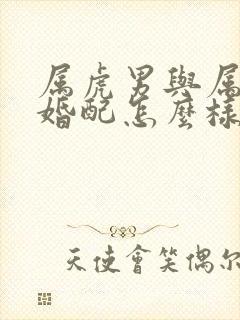 属虎男與属
婚配怎麼樣
天使會笑偶尔